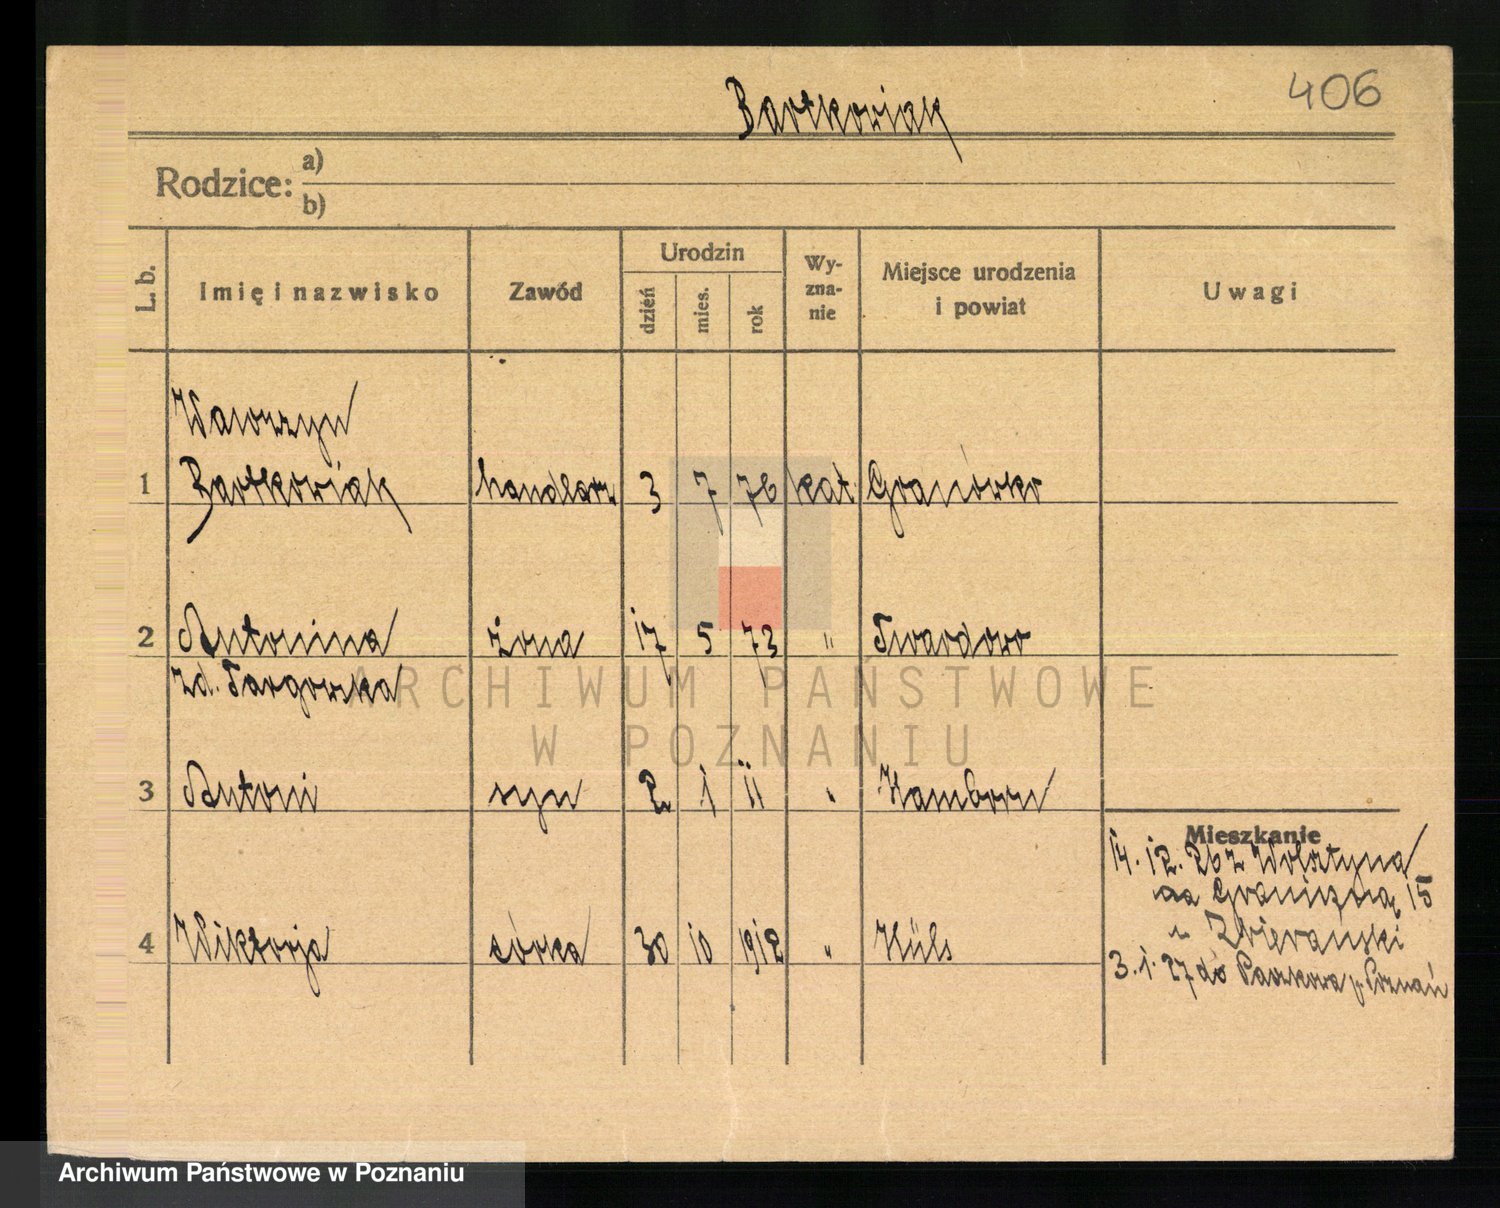 406
Bartkowiak
Rodzice: a)
b)
L. b. Imię i nazwisko Zawód Urodzin dzień mies. rok Wy-zna-nie Miejsce urodzenia i powiat Uwagi
Wawrzyn
1 Bartkowiak handlarz 3 7 76 kat. Granówko
2 Antonina żona 17 5 73 " Twardowo
zd. Targowska
ARCHIWUM PAŃSTWOWE
W POZNANIU
3 Antoni syn 2 1 11 " Hamborn
Mieszkanie
14.12.26 z Wolsztyna
na Graniczną 15
4 Wiktorja córka 30 10 1912 " Hüls
u
3.1.27 do p. Poznań
Archiwum Państwowe w Poznaniu